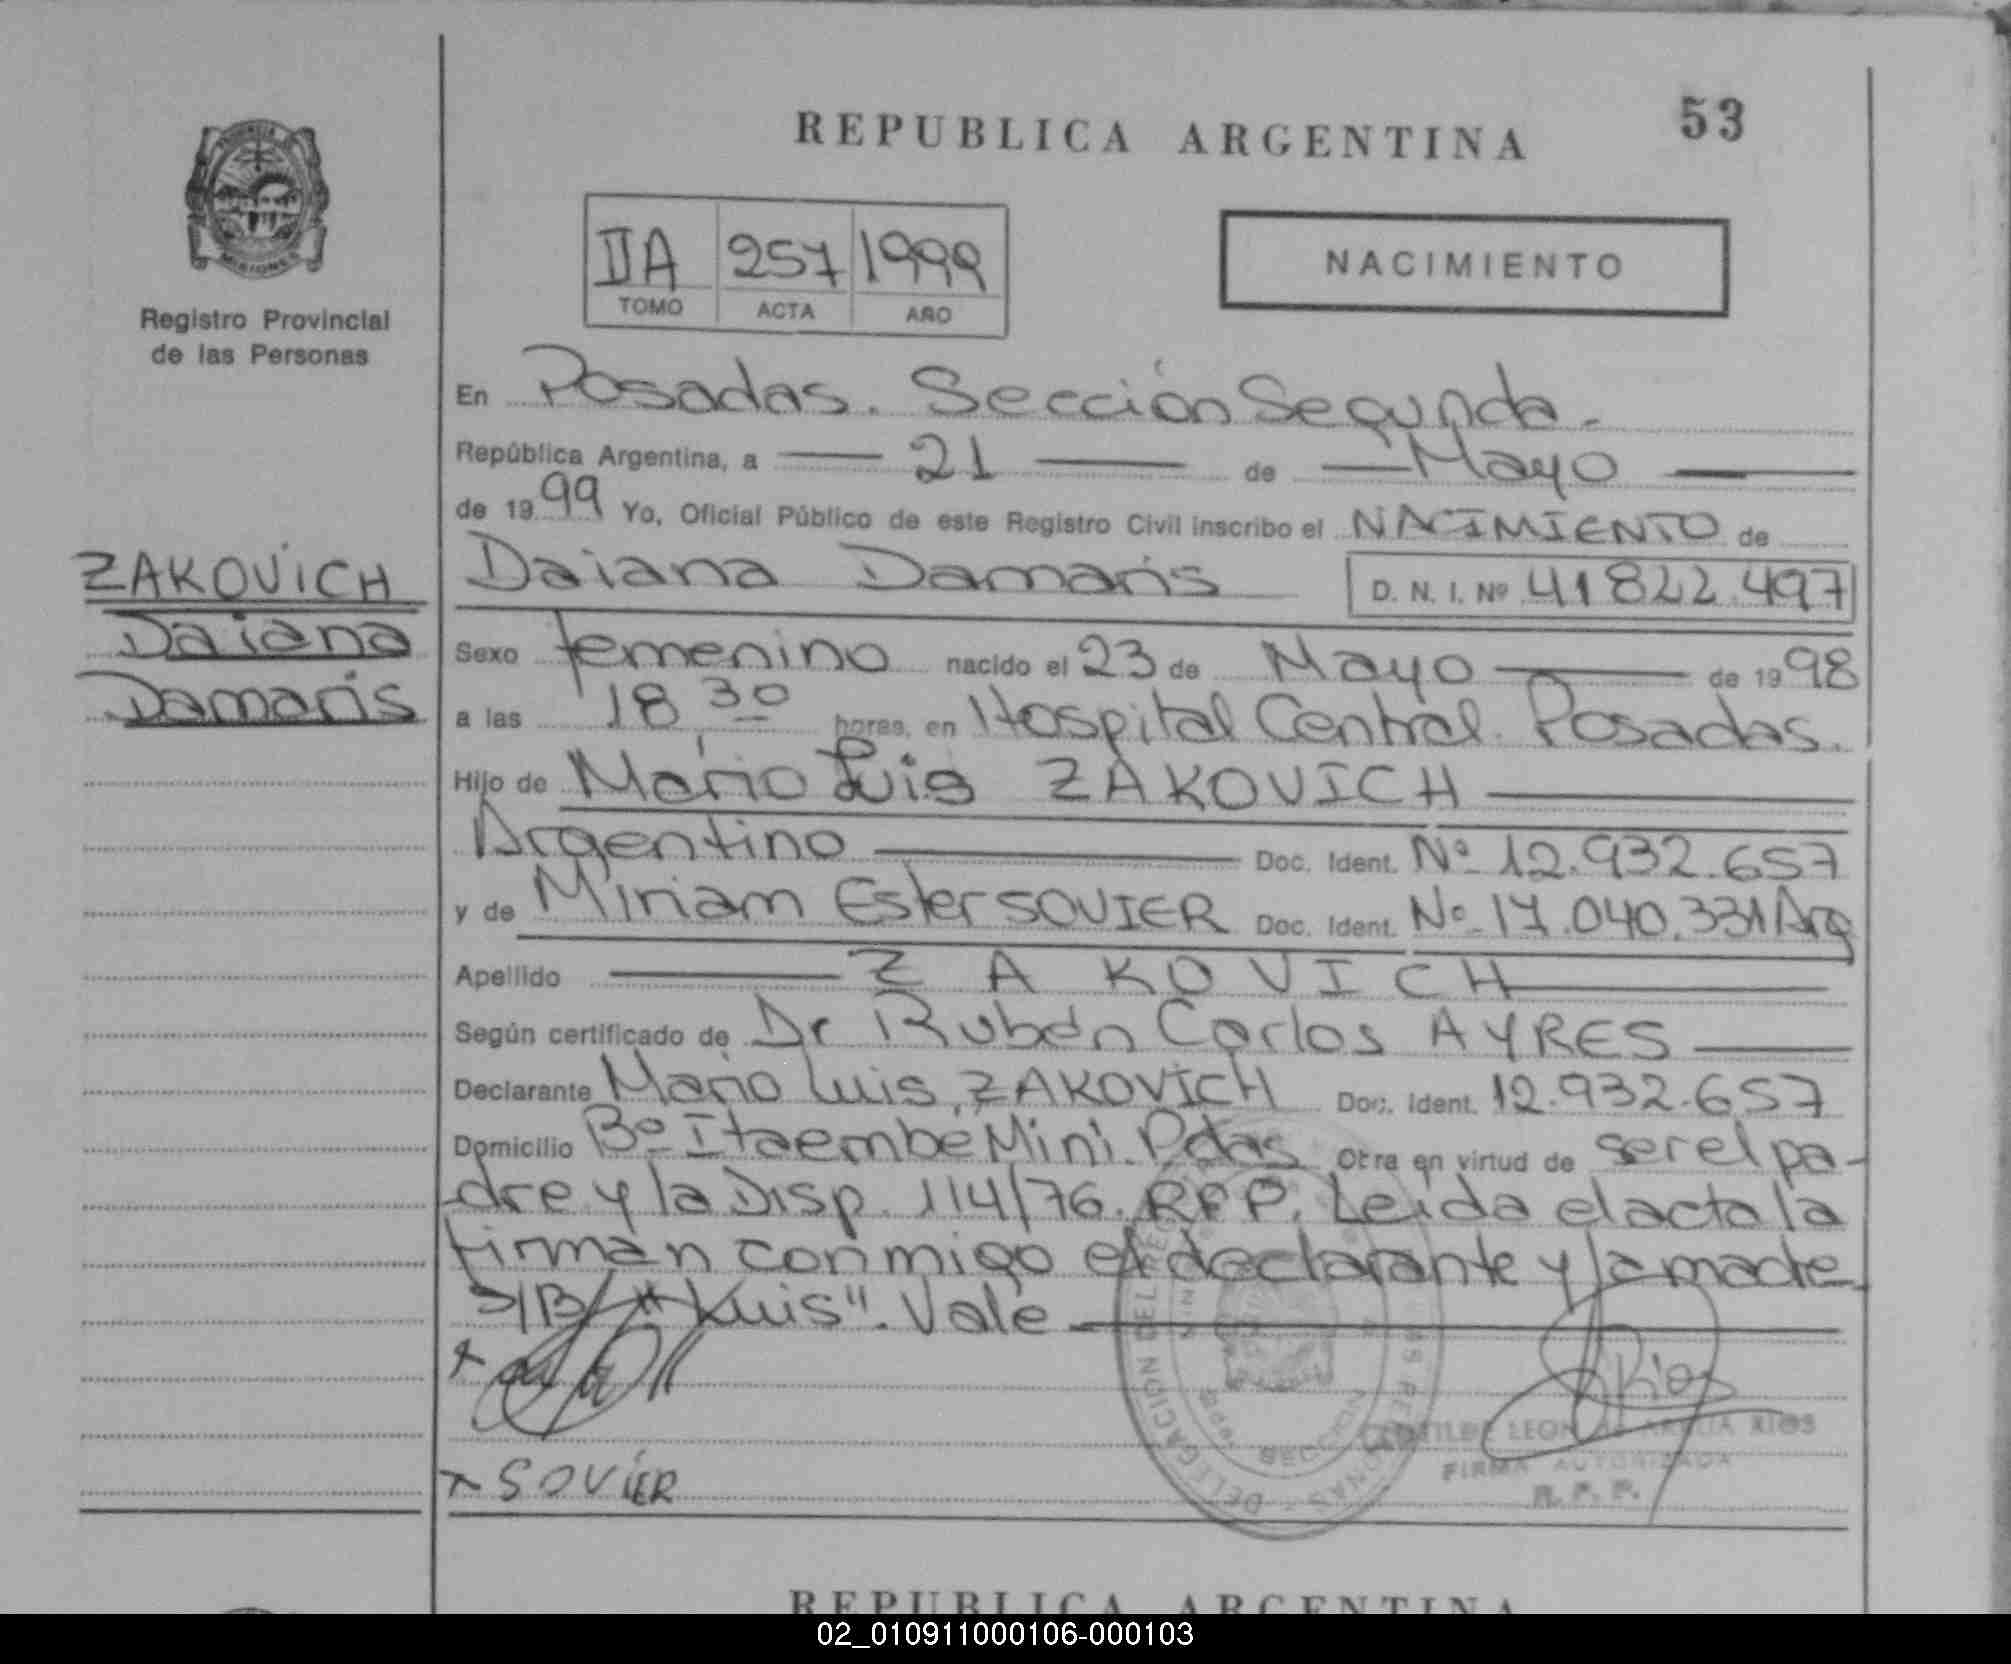 REPUBLICA ARGENTINA
53
MISIONES
Registro Provincial
de las Personas
IIA 257 1999
TOMO ACTA AÑO
NACIMIENTO
En Posadas. Sección Segunda.
República Argentina, a 21 de Mayo
de 1999 Yo, Oficial Público de este Registro Civil inscribo el NACIMIENTO de
ZAKOVICH
Daiana
Damaris
Daiana Damaris D. N. I. Nº 41822.497
Sexo femenino nacido el 23 de Mayo de 1998
a las 18 30 horas, en Hospital Central. Posadas.
Hijo de Mario Luis ZAKOVICH
Argentino Doc. Ident. Nº 12.932.657
y de Miriam Ester SOVIER Doc. Ident. Nº 17.040.331 Arg
Apellido ZAKOVICH
Según certificado de Dr Rubén Carlos AYRES
Declarante Mario Luis ZAKOVICH Doc. Ident. 12.932.657
Domicilio Bº Itaembe Mini. Pdas Obra en virtud de ser el pa-
dre y la Disp. 114/76. RPP. Leida el acta la
firman conmigo el declarante y la madre
S/B/ "Luis". Vale
x
x SOVIER
Rios
LEON DE ARAUJA RIOS
FIRMA AUTORIZADA
R. P. P.
DELEGACION DEL
SECCION
REPUBLICA ARGENTINA
02_010911000106-000103